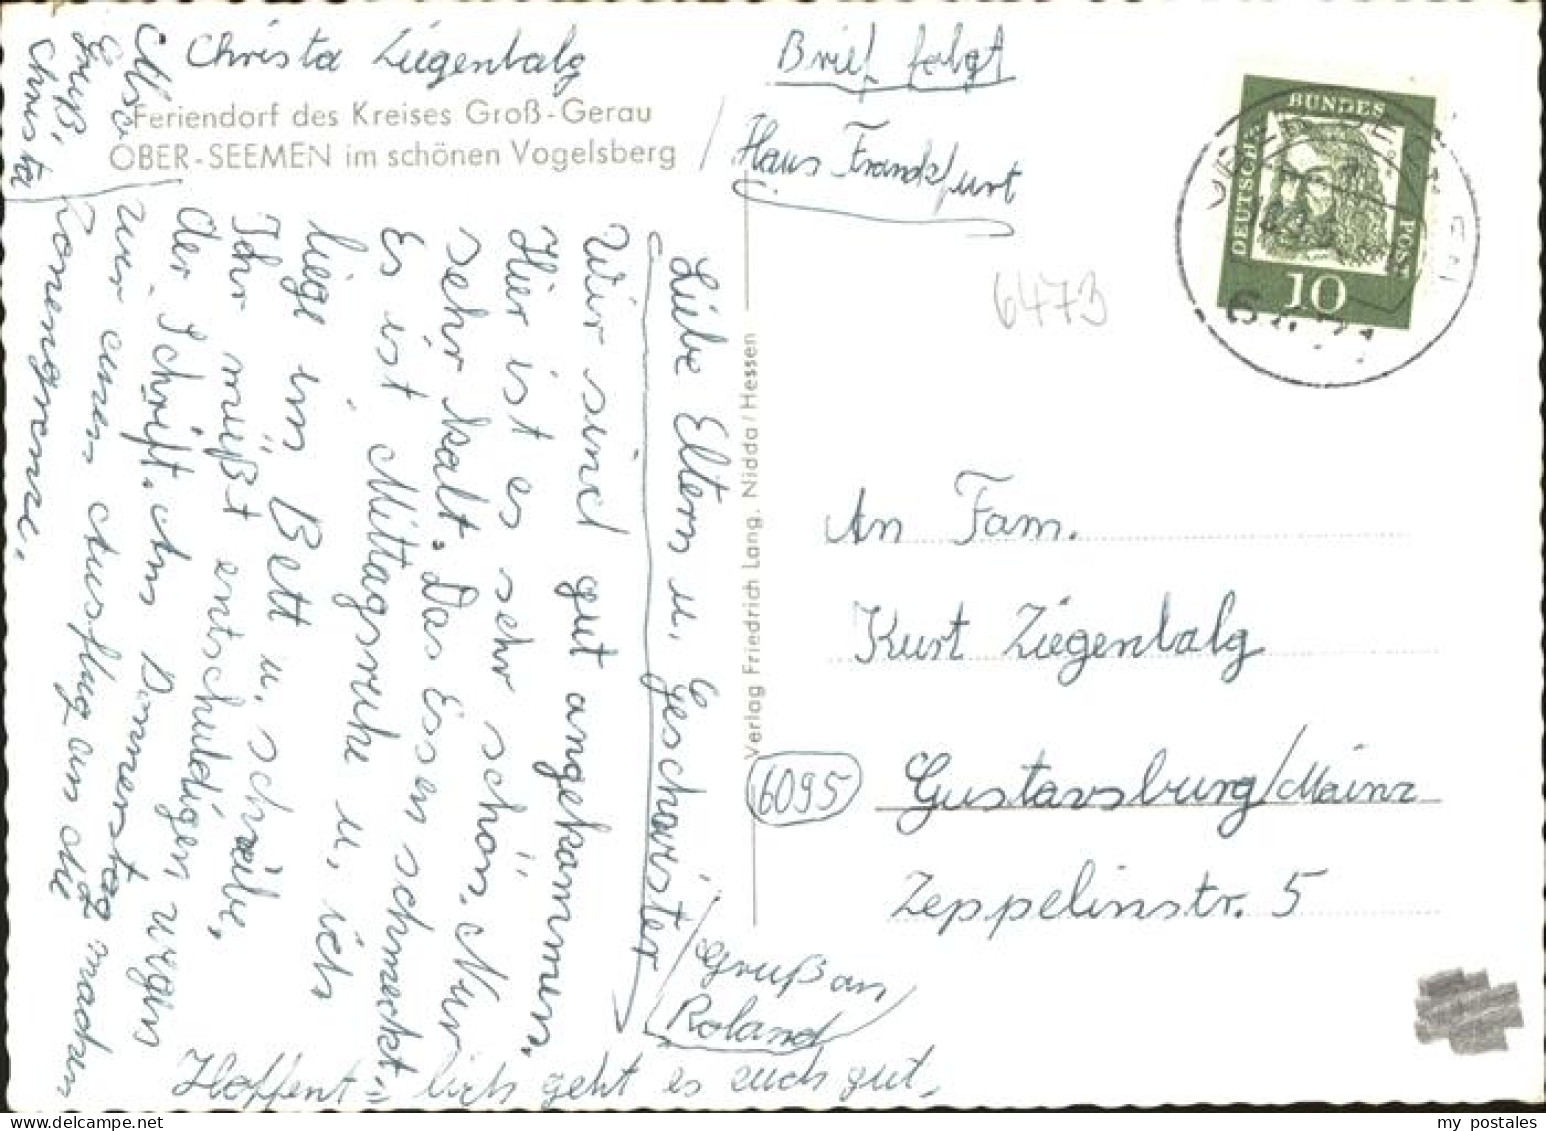 Christa Ziegenbalg
Feriendorf des Kreises Groß-Gerau
OBER-SEEMEN im schönen Vogelsberg
Brief folgt
Haus Frankfurt
Liebe Eltern u. Geschwister
Wir sind gut angekommen.
Hier ist es sehr schön. Nur
sehr kalt. Das Essen schmeckt.
Es ist Mittagsruhe u. ich
liege im Bett u. schreibe,
Ihr müßt entschuldigen wegen
der Schrift. Am Donnerstag machen
wir einen Ausflug an die
Zonengrenze.
Also
Gruß,
Christa
Hoffent= lich geht es euch gut.
Gruß an
Roland
Verlag Friedrich Lang, Nidda/Hessen
DEUTSCHE
BUNDES
POST
10
6473
An Fam.
Kurt Ziegenbalg
6095
Gustavsburg/Mainz
Zeppelinstr. 5
my postales